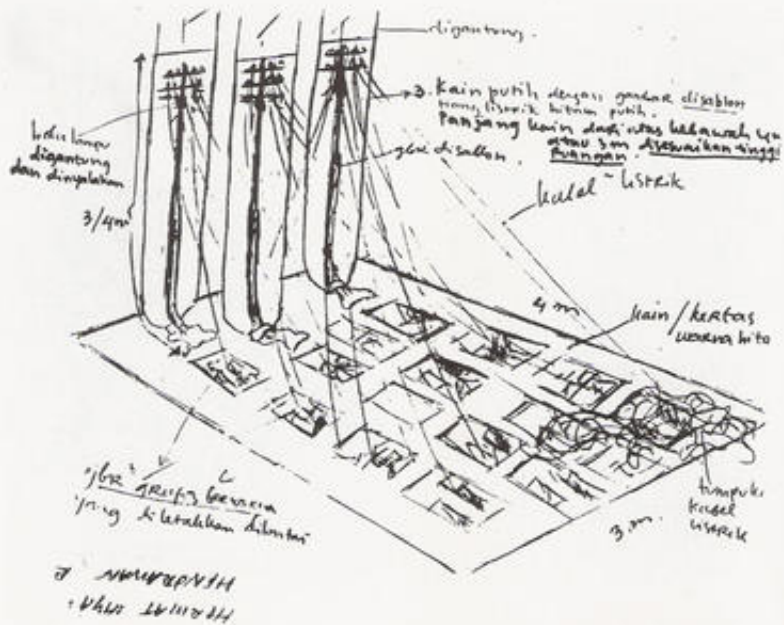 digantung.
3. Kain putih dengan gambar disablon
tiang listrik hitam putih.
Panjang kain dari atas kebawah
atau 3m disesuaikan tinggi
Ruangan.
gbr disablon.
digantung
dan dinyalakan
3/4m
kabel listrik
4 m
kain/kertas
warna
gbr² grafis berwarna
yang diletakkan dilantai
tumpukan
kabel
listrik
3 m.
HENDRAWAN R